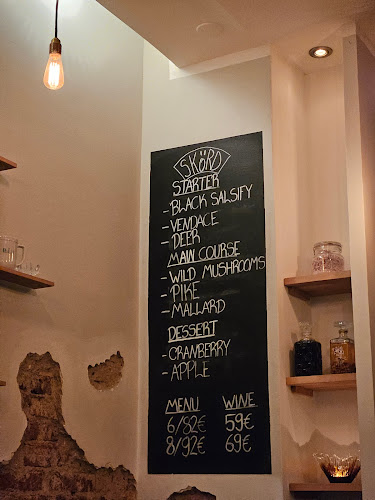 SKÖRD
STARTER
- BLACK SALSIFY
- VENDACE
- DEER
MAIN COURSE
- WILD MUSHROOMS
- PIKE
- MALLARD
DESSERT
- CRANBERRY
- APPLE
MENU WINE
6/82€ 59€
8/92€ 69€